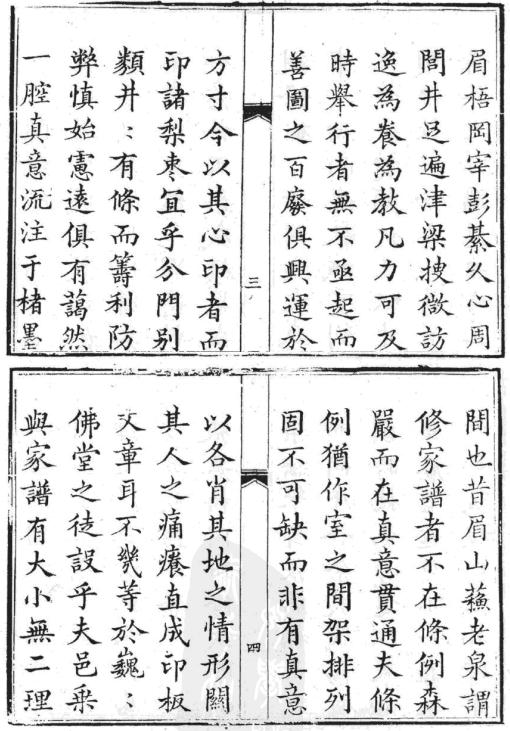 眉梧岡宰彭綦久心周
閭井足遍津梁搜微訪
逸為養為教凡力可及
時舉行者無不亟起而
善圖之百廢俱興運於
三
方寸今以其心印者而
印諸梨棗宜乎分門别
纇井:有條而籌利防
弊慎始慮遠俱有藹然
一腔真意流注于楮墨
間也昔眉山蘓老泉謂
修家譜者不在條例森
嚴而在真意貫通夫條
例猶作室之間架排列
固不可缺而非有真意
四
以各肖其地之情形關
其人之痛癢直成印板
文章耳不幾等於巍:
佛堂之徒設乎夫邑乗
與家譜有大小無二理